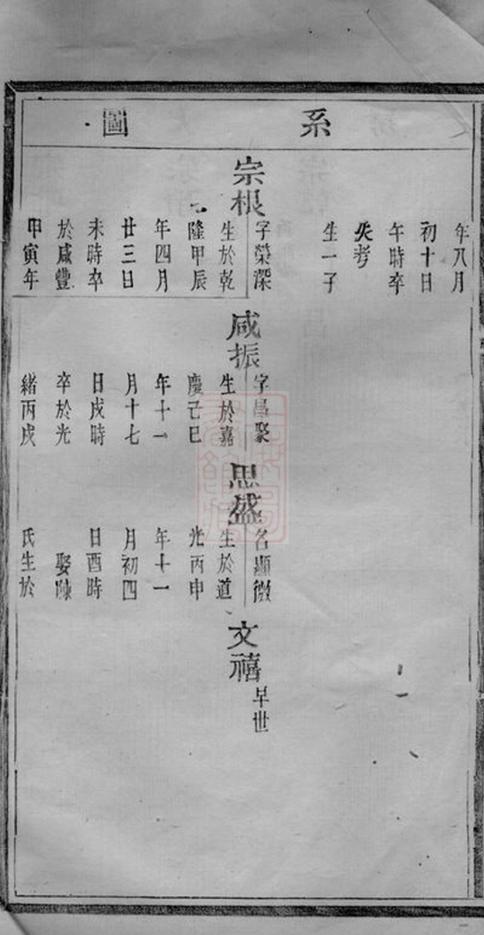 系圖
年八月
初十日
午時卒
失考
生一子
宗根
字榮深
生於乾
隆甲辰
年四月
廿三日
未時卒
於咸豐
甲寅年
咸振
字昌聚
生於嘉
慶己巳
年十一
月十七
日戌時
卒於光
緒丙戌
思盛
名顯徵
生於道
光丙申
年十一
月初四
日酉時
娶陳
氏生於
文禧
早世